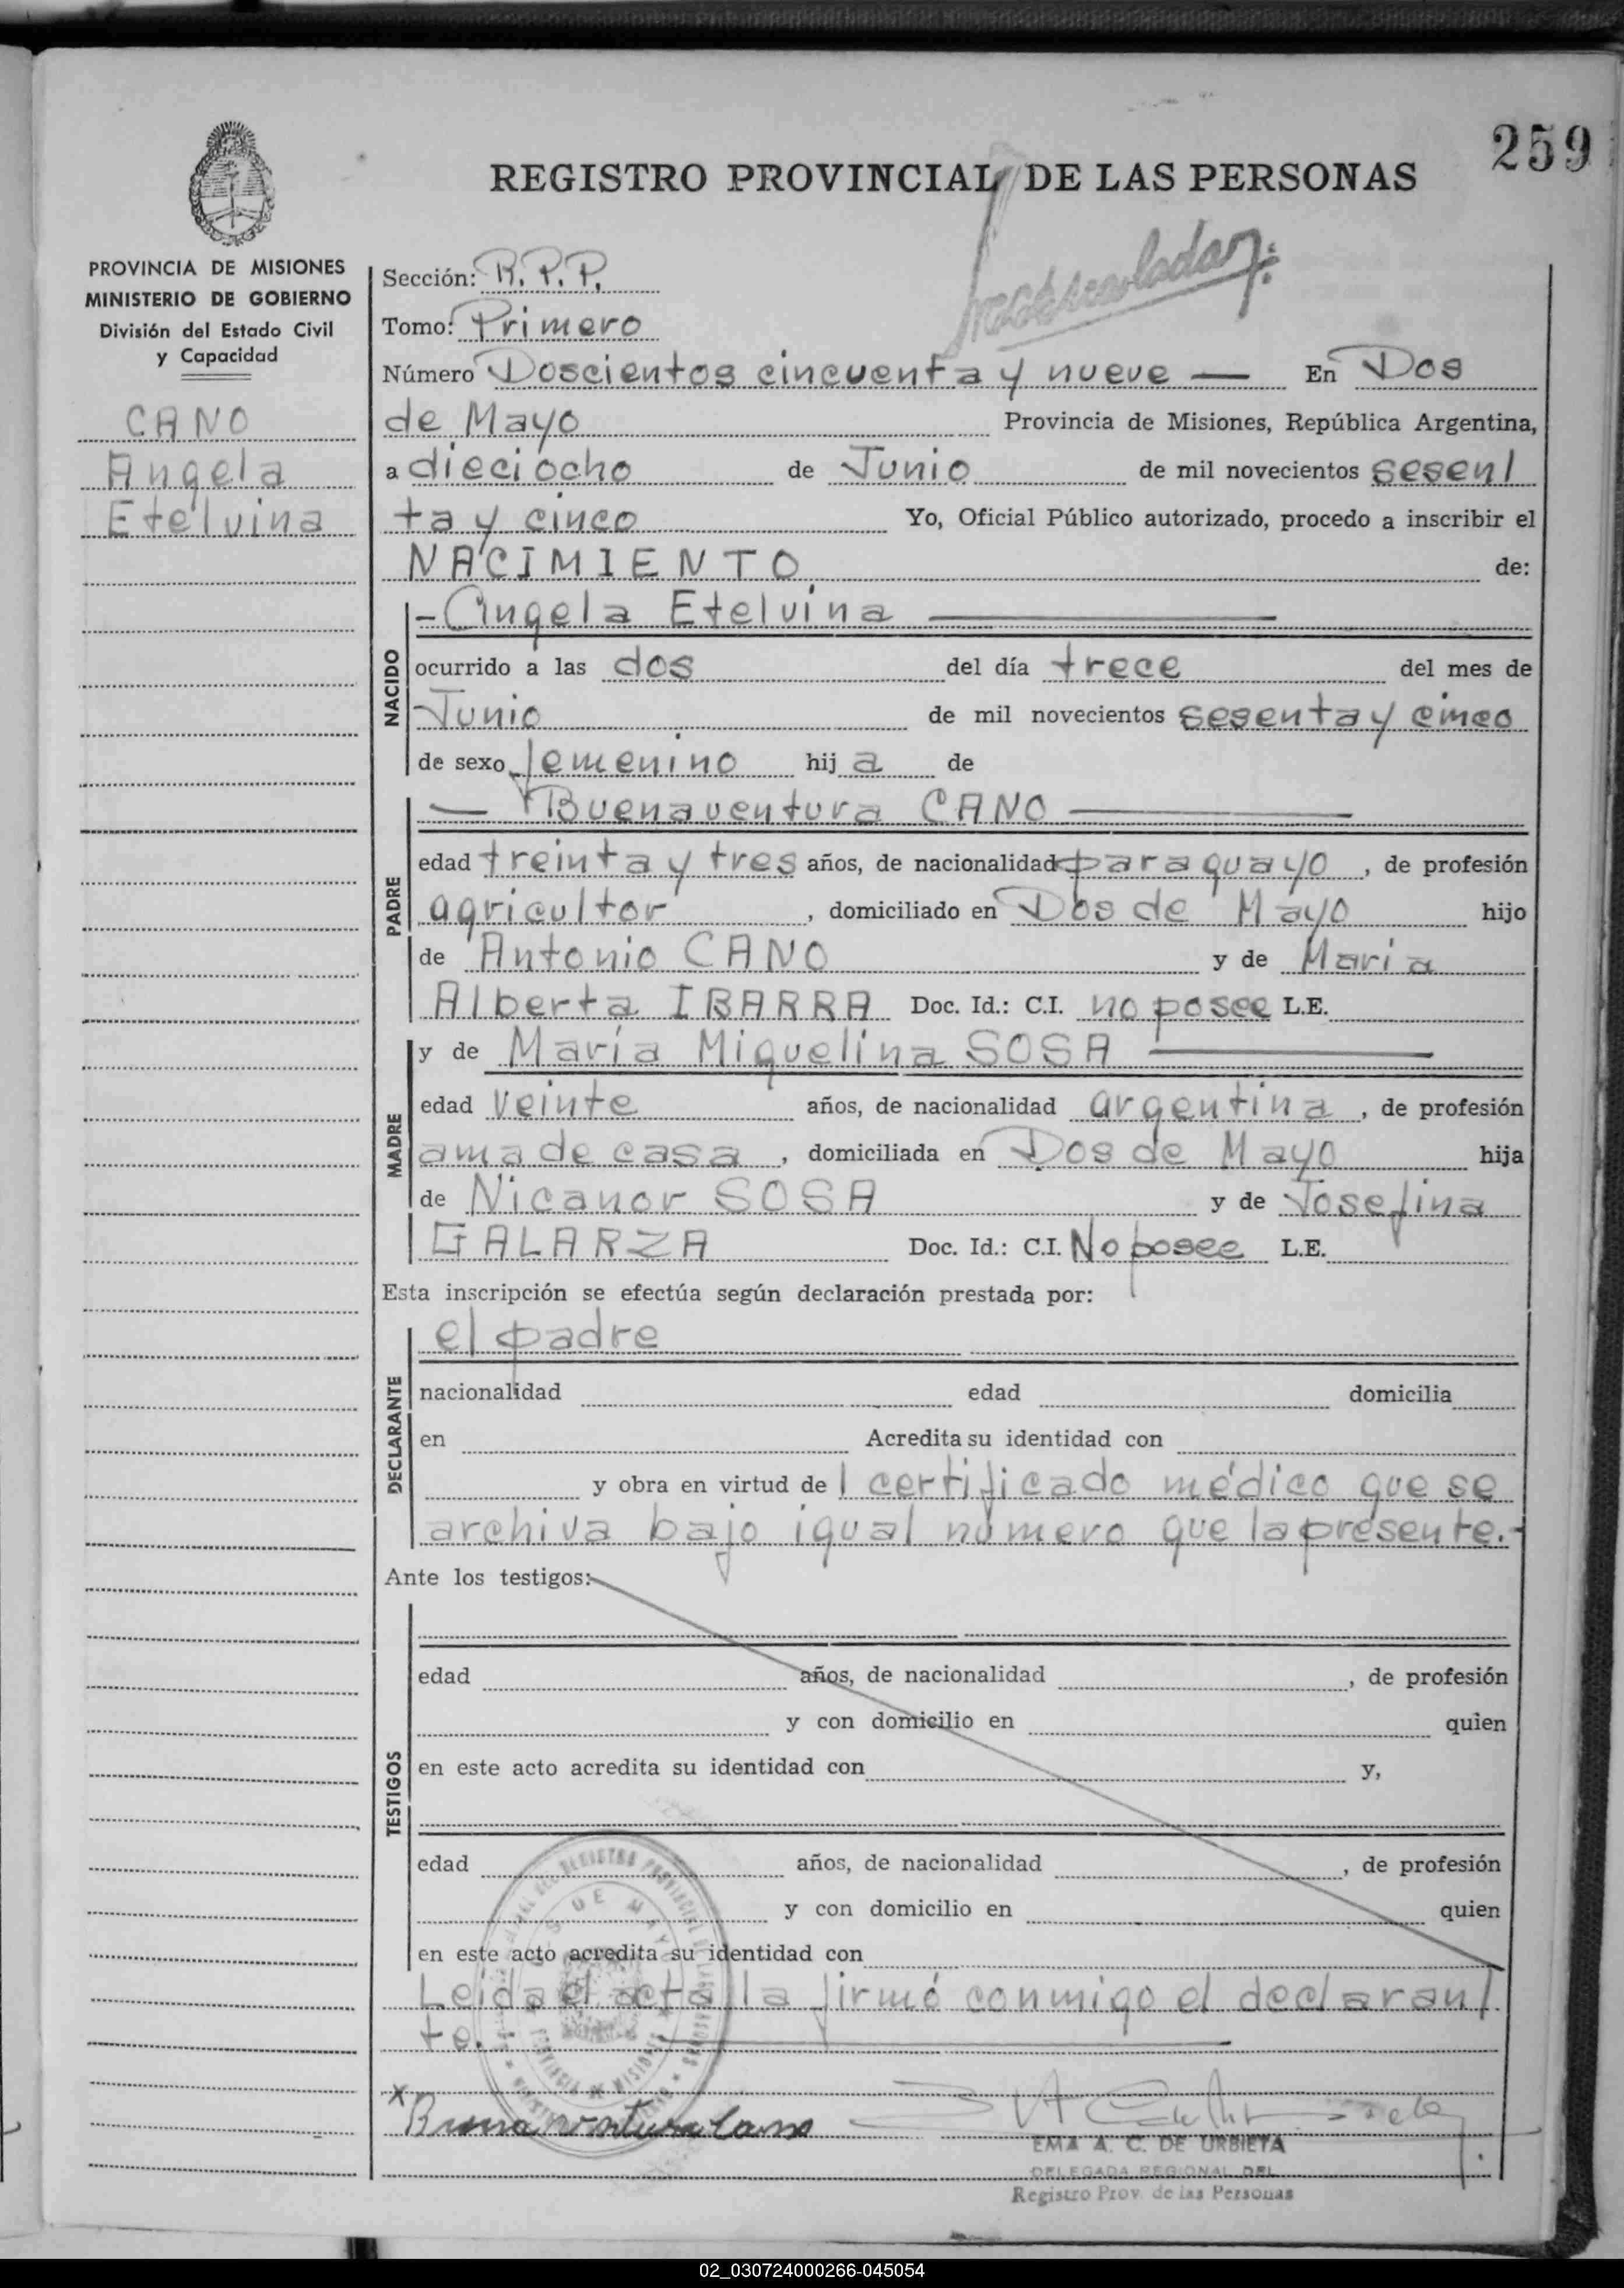 259
REGISTRO PROVINCIAL DE LAS PERSONAS
PROVINCIA DE MISIONES
MINISTERIO DE GOBIERNO
División del Estado Civil
y Capacidad
CANO
Angela
Etelvina
Sección: R. P. P.
Tomo: Primero
Número Doscientos cincuenta y nueve — En Dos
de Mayo Provincia de Misiones, República Argentina,
a dieciocho de Junio de mil novecientos sesen/
ta y cinco Yo, Oficial Público autorizado, procedo a inscribir el
NACIMIENTO de:
NACIDO
- Angela Etelvina —
ocurrido a las dos del día trece del mes de
Junio de mil novecientos sesenta y cinco
de sexo femenino hij a de
PADRE
— Buenaventura CANO —
edad treinta y tres años, de nacionalidad paraguayo, de profesión
agricultor, domiciliado en Dos de Mayo hijo
de Antonio CANO y de Maria
Alberta IBARRA Doc. Id.: C.I. no posee L.E.
MADRE
y de María Miguelina SOSA —
edad veinte años, de nacionalidad argentina, de profesión
ama de casa, domiciliada en Dos de Mayo hija
de Nicanor SOSA y de Josefina
GALARZA Doc. Id.: C.I. No posee L.E.
Esta inscripción se efectúa según declaración prestada por:
DECLARANTE
el padre
nacionalidad edad domicilia
en Acredita su identidad con
y obra en virtud de l certificado médico que se
archiva bajo igual número que la presente.-
Ante los testigos:
TESTIGOS
edad años, de nacionalidad , de profesión
y con domicilio en quien
en este acto acredita su identidad con y,
edad años, de nacionalidad , de profesión
y con domicilio en quien
en este acto acredita su identidad con
Leída el acta la firmó conmigo el declaran/
te. —
REGISTRO PROVINCIAL DE LAS PERSONAS
DOS DE MAYO
PROVINCIA DE MISIONES
x Buenaventura Cano
EMA A. C. DE URBIETA
DELEGADA REGIONAL DEL
Registro Prov. de las Personas
02_030724000266-045054